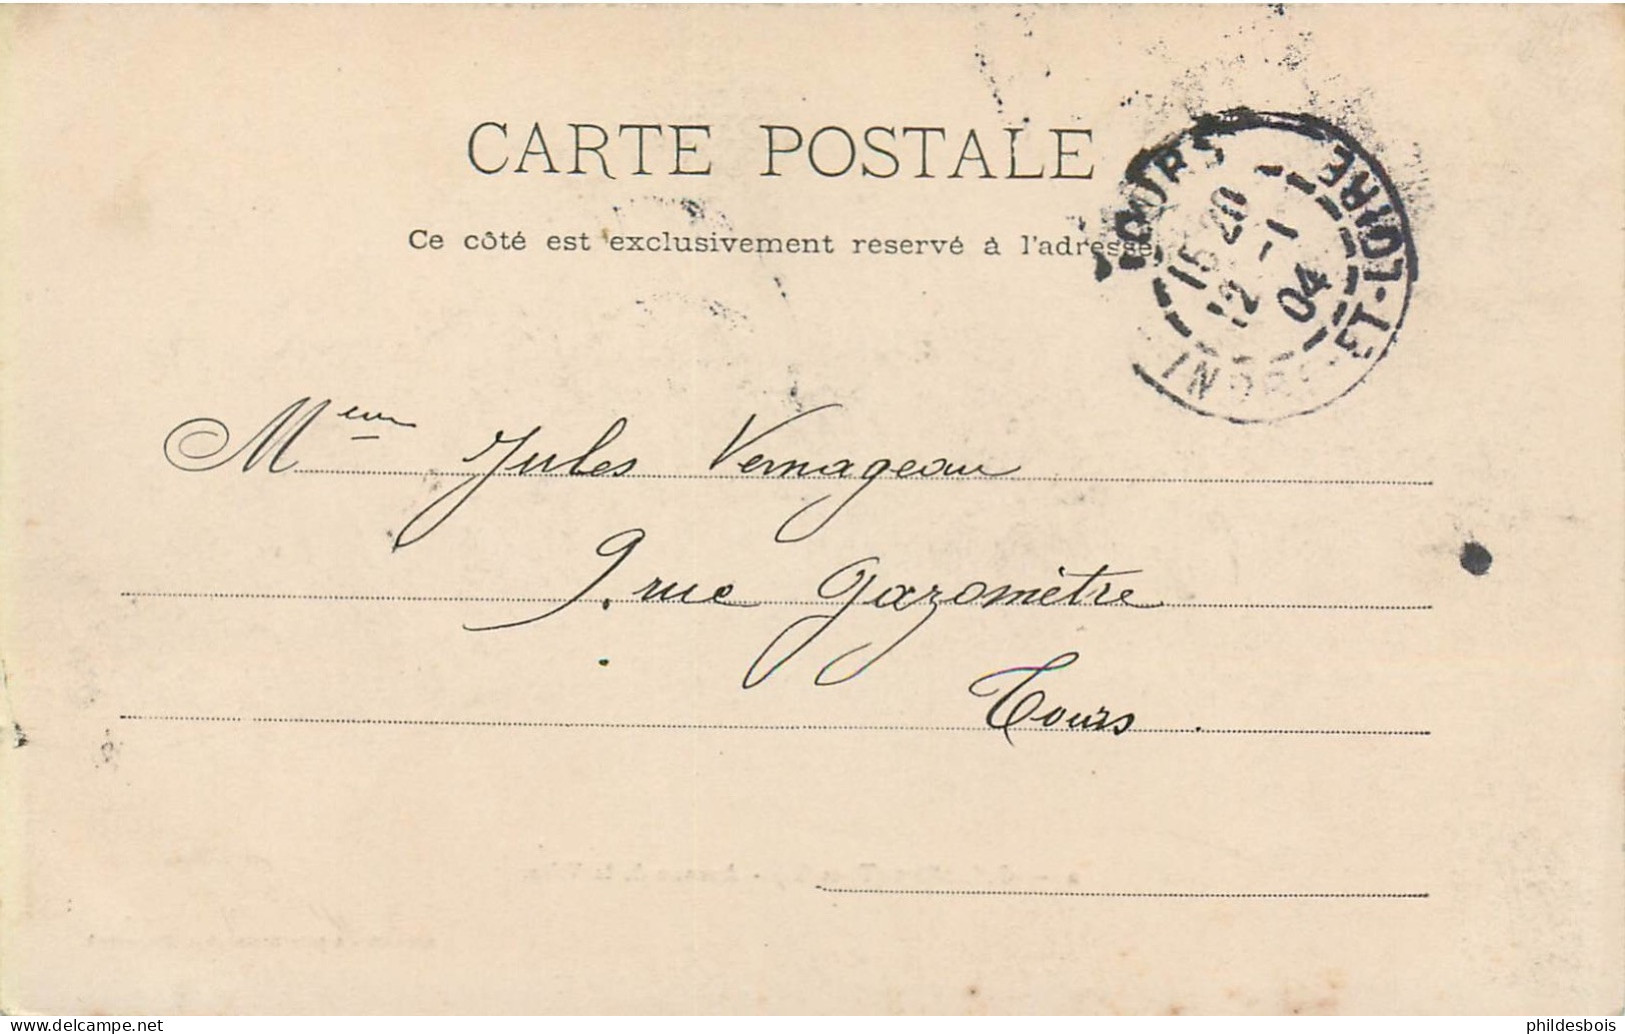 CARTE POSTALE
Ce côté est exclusivement reservé à l'adresse
TOURS
15 20
12 -1
04
INDRE-ET-LOIRE
Mme Jules Vernageau
9. rue Gazomètre
Tours .
www.delcampe.net
phildesbois